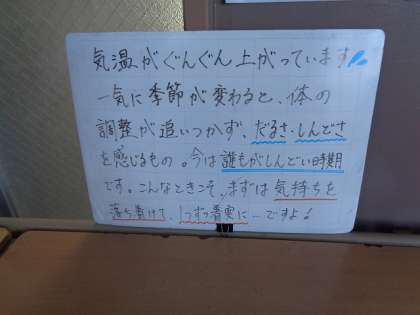 気温がぐんぐん上がっています
一気に季節が変わると、体の
調整が追いつかず、だるさ・しんどさ
を感じるもの。今は誰もがしんどい時期
です。こんなときこそ、まずは気持ちを
落ち着けて、1つずつ着実に…ですよ!